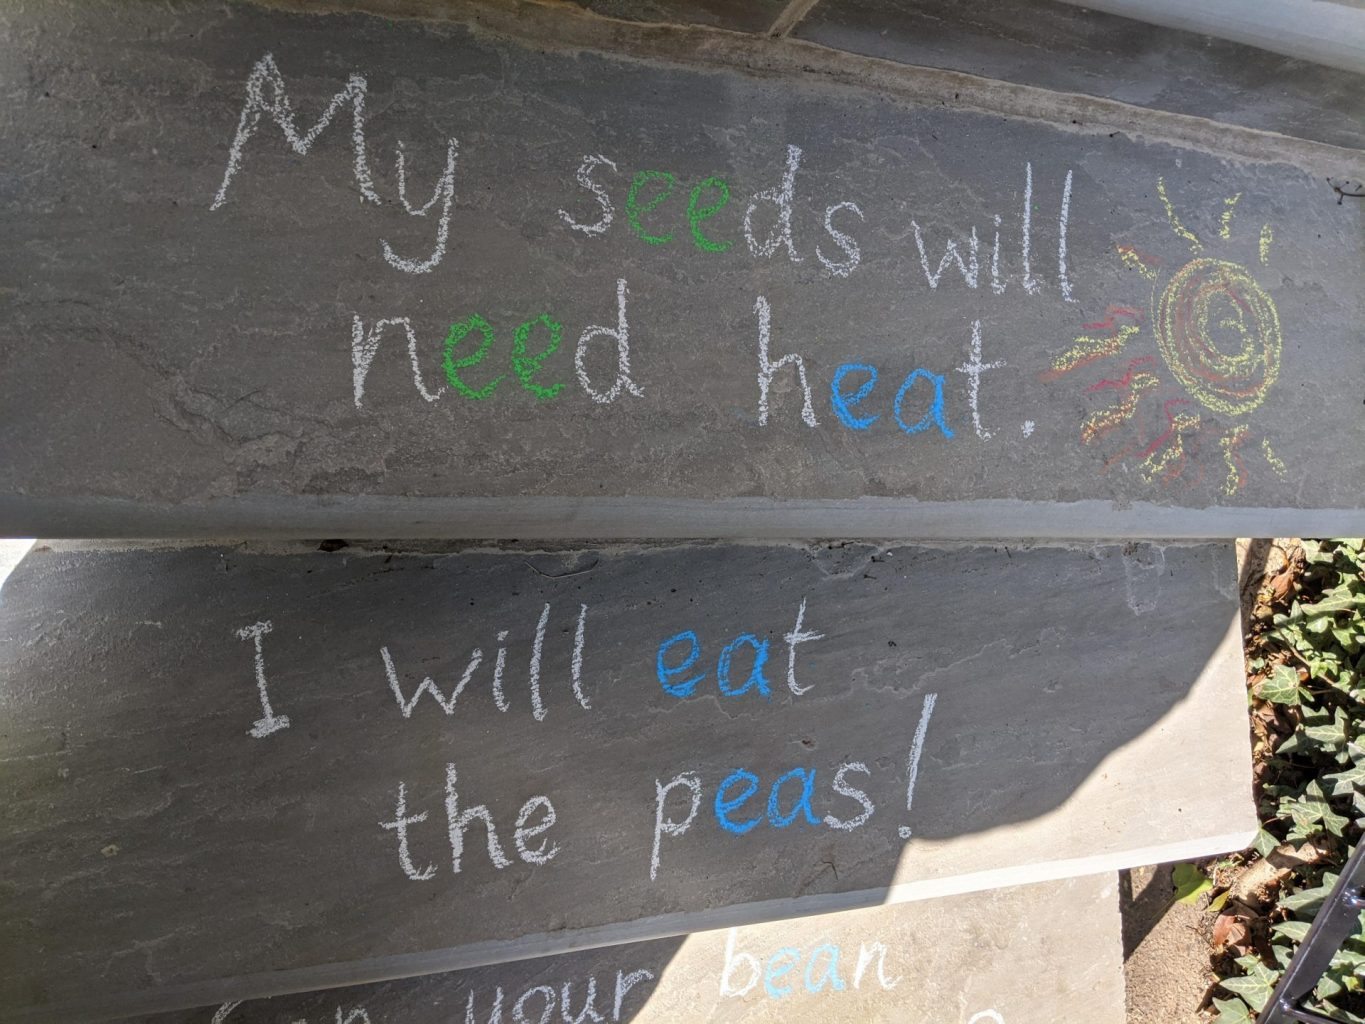 My seeds will
need heat.
I will eat
the peas!
your bean